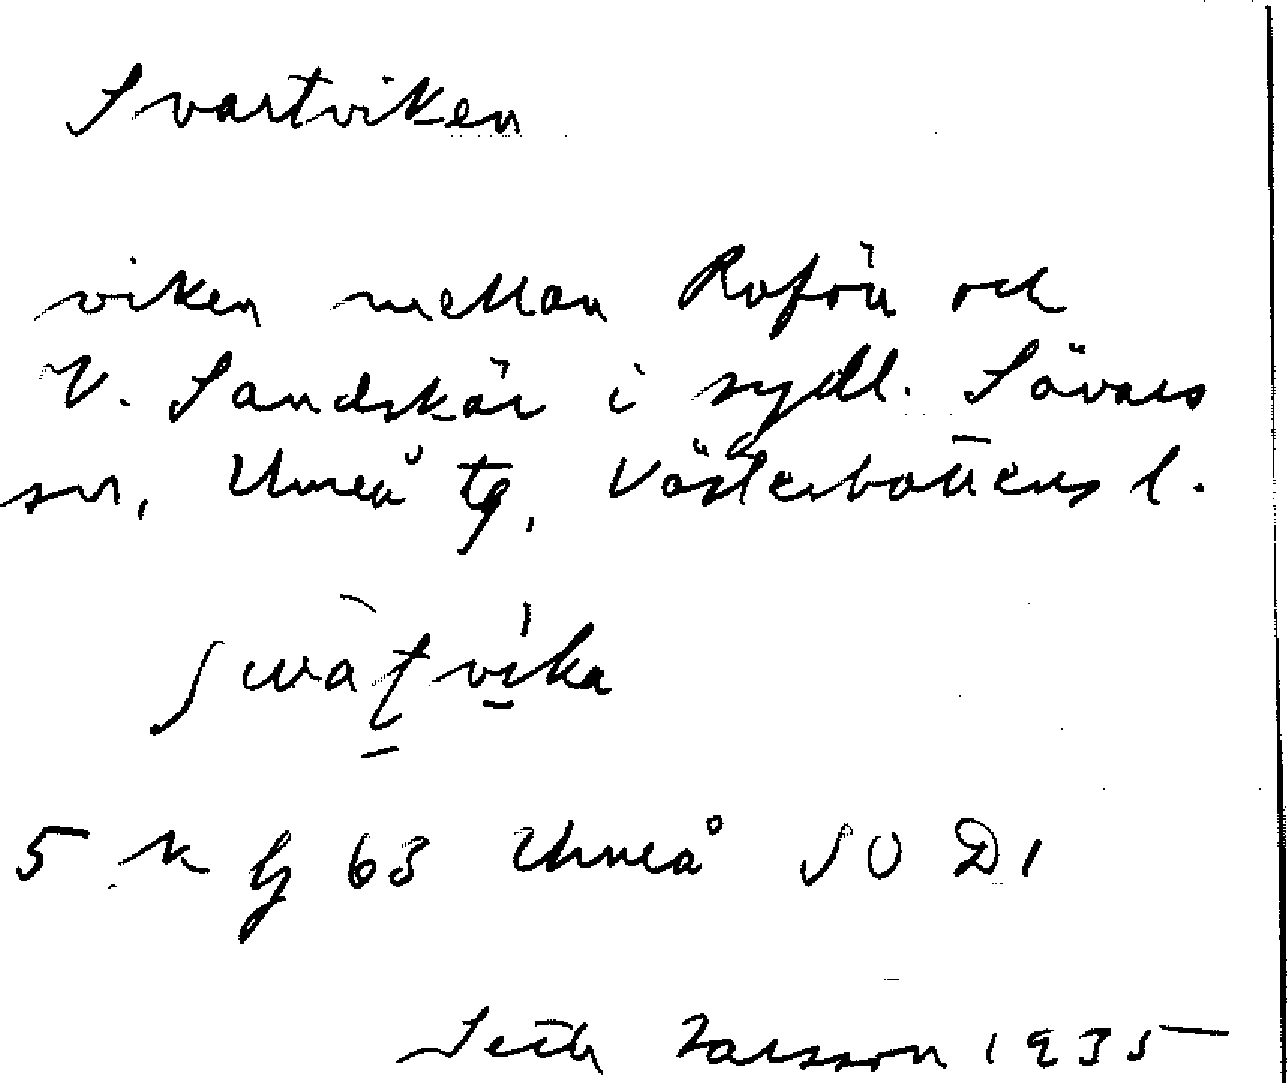 Svartviken
viken mellan Rofön och
V. Sandskär i sydl. Sävars
sn, Umeå tg, Västerbottens l.
svàt̲vi̲ka
5 k bg 63 Umeå SO D1
Seth Larsson 1935